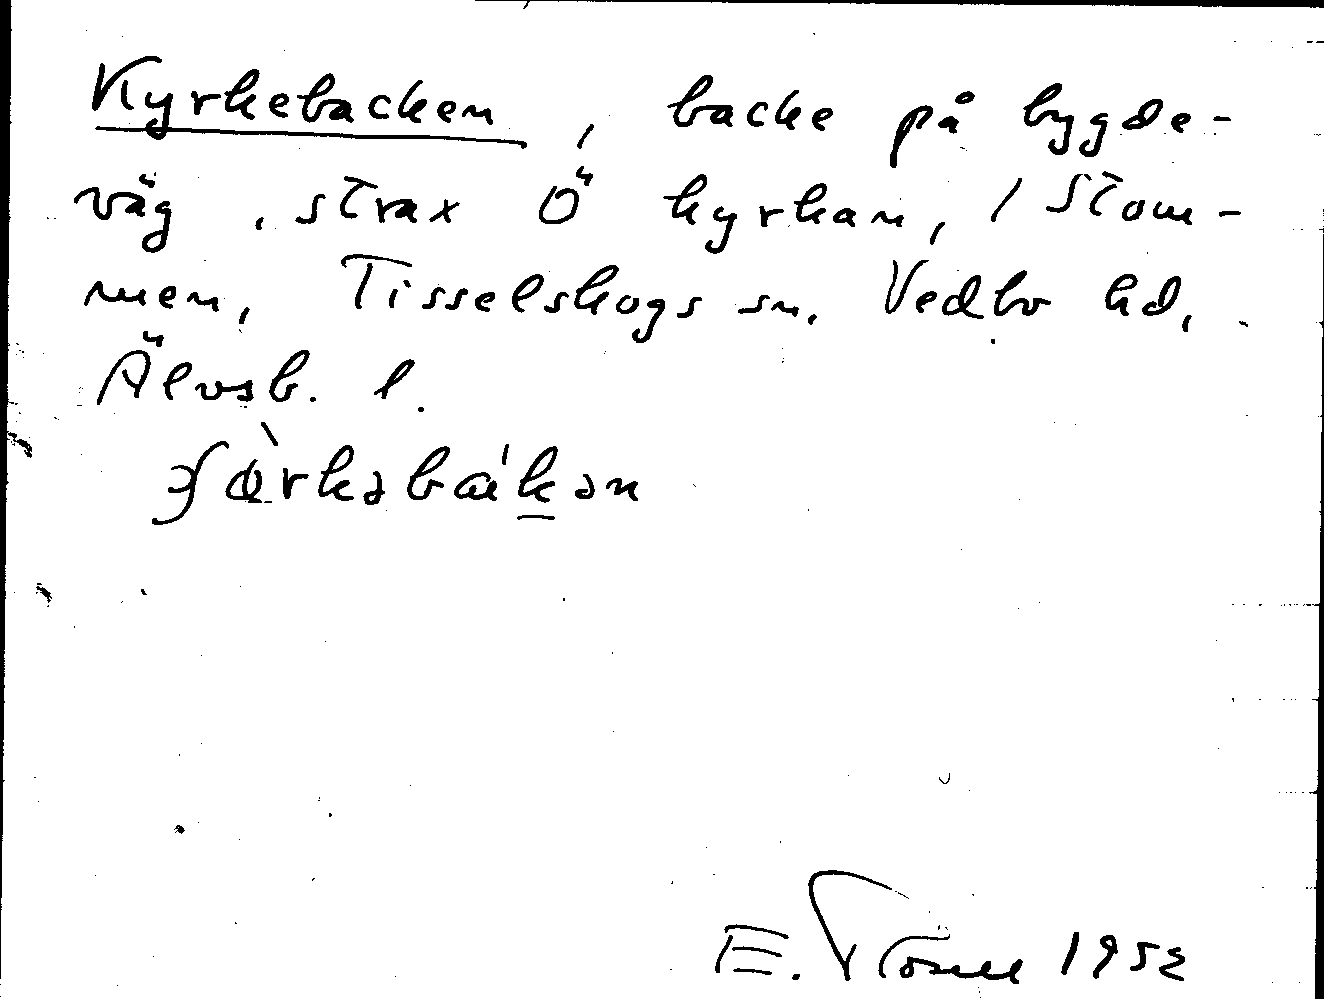 Kyrkebacken, backe på bygde-
väg, strax Ö kyrkan, / Stom-
men, Tisselskogs sn. Vedbo hd,
Älvsb. l.
E. 1952